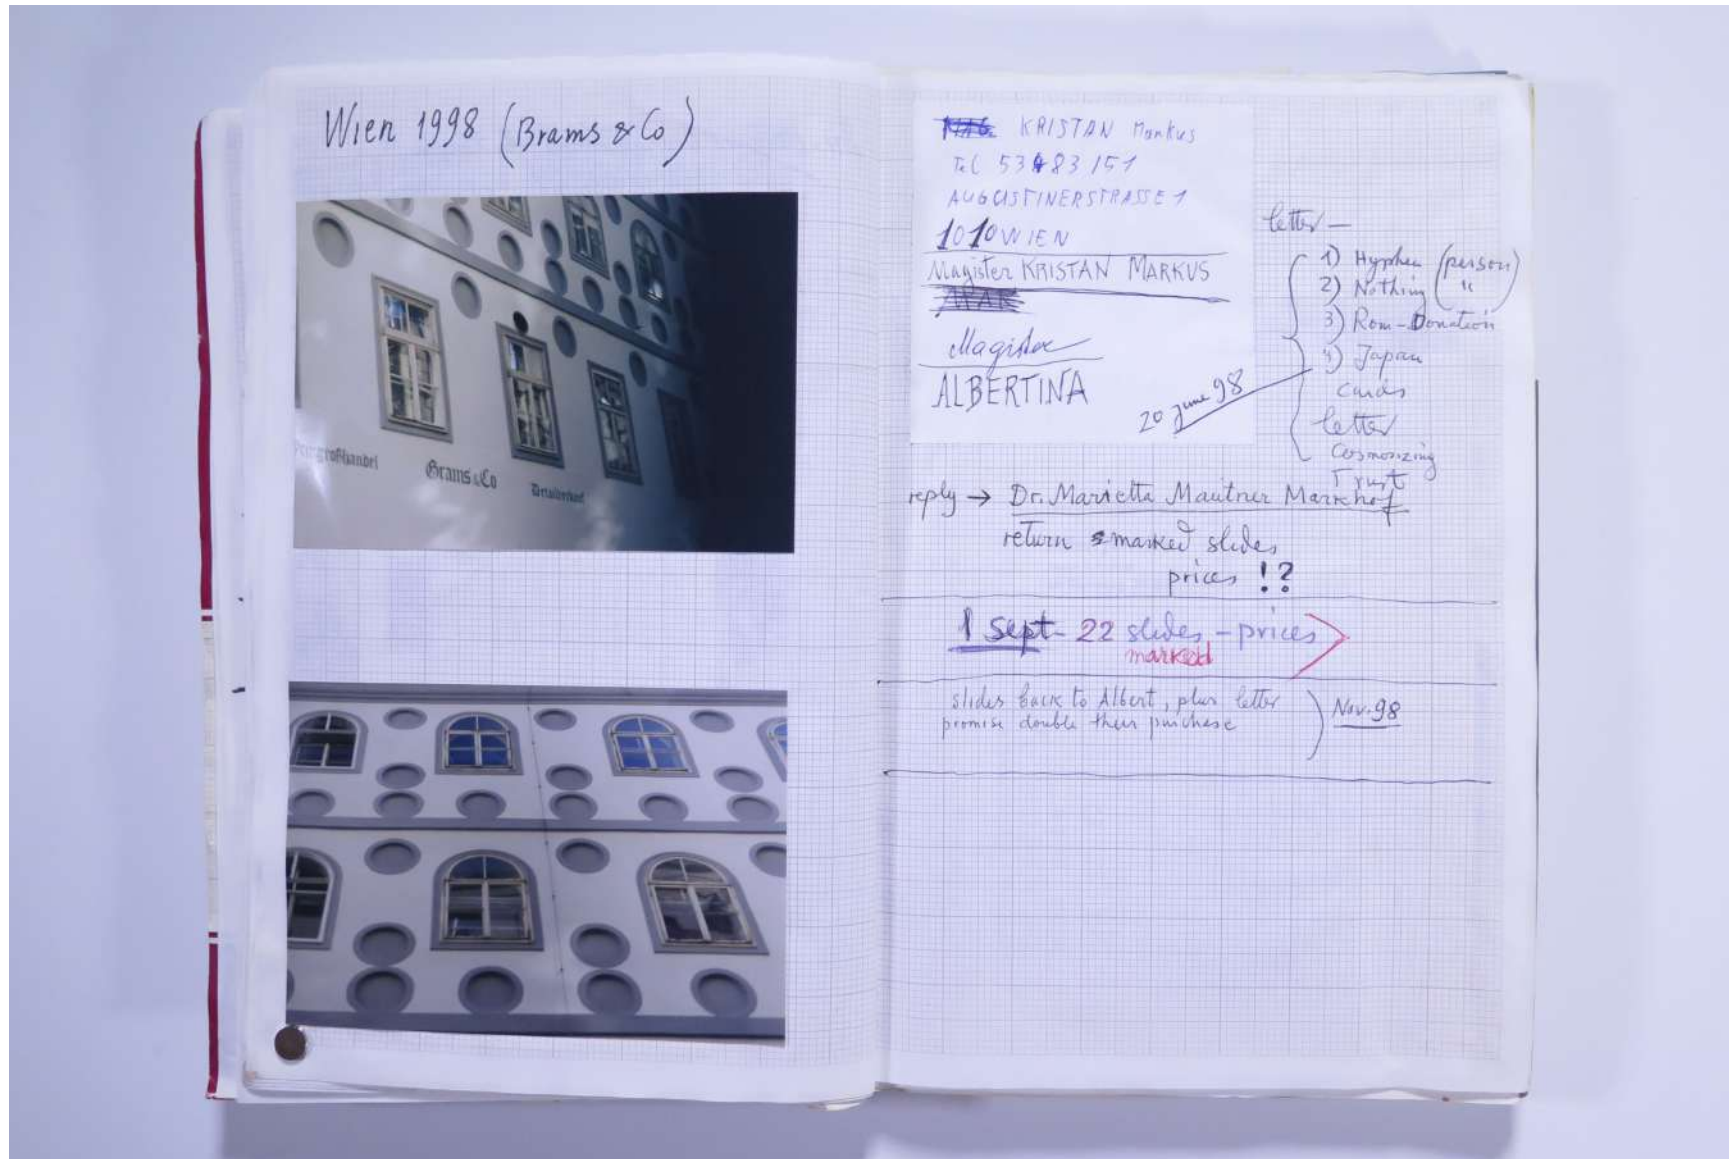 Wien 1998 (Brams & Co)
Grams & Co
Detailverkauf
KRISTAN Markus
Tel 53483 151
AUGUSTINERSTRASSE 1
1010 WIEN
Magister KRISTAN MARKUS
Magister
ALBERTINA
20 June 98
letter —
1) Hyphen (person)
2) Nothing ( " )
3) Rom-Donation
4) Japan
cards
letter
Cosmosizing
Trust
reply → Dr. Marietta Mautner Markhof
return marked slides
prices !?
1 Sept - 22 slides - prices
marked
slides back to Albert, plus letter
promise double their purchase
Nov. 98